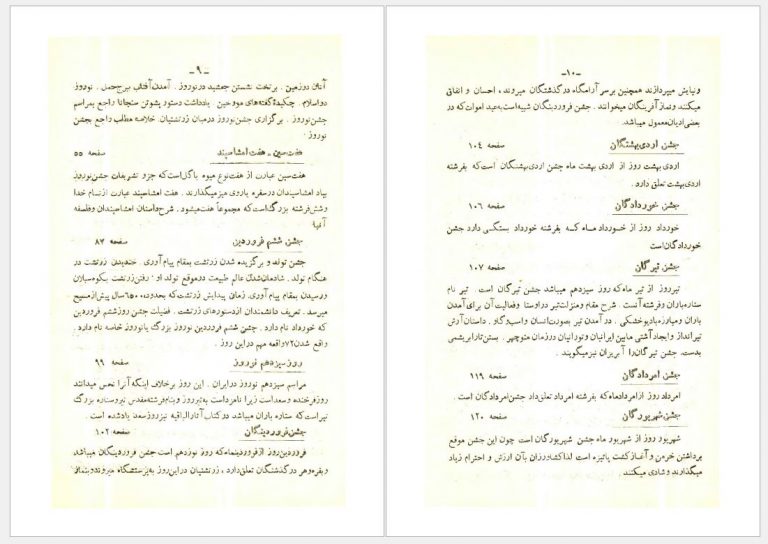 ـ ۹ ـ
آنان دوزمین . برتخت نشستن جمشید درنوروز . آمدن آفتاب ببرج حمل . نوروز
دراسلام . چکیدهٔ گفته‌های مورخین . یادداشت دستور پشوتن سنجانا راجع بمراسم
جشن نوروز . برگزاری جشن نوروز درمیان زرتشتیان . خلاصه مطلب راجع بجشن
نوروز .
هفت سین ـ هفت امشاسپند صفحه ۵۵
هفت سین عبارت از هفت نوع میوه یا گل است که جزو تشریفات جشن نوروز
بیاد امشاسپندان درسفره یا روی میز میگذارند . هفت امشاسپند عبارت ازنام خدا
وشش فرشته بزرگ است که مجموعاً هفت میشود . شرح داستان امشاسپندان وفلسفه
آنها
جشن ششم فروردین صفحه ۸۷
جشن تولد و برگزیده شدن زرتشت بمقام پیام آوری . خندیدن زرتشت در
هنگام تولد . شادمان شدن عالم طبیعت درموقع تولد او . رفتن زرتشت بکوه سبلان
و رسیدن بمقام پیام آوری. زمان پیدایش زرتشت که بحدود ۶۵۰۰ سال پیش از مسیح
میرسد . تعریف دانشمندان ازدستورهای زرتشت . فضیلت جشن روز ششم فروردین
که خورداد نام دارد . جشن ششم فروردین نوروز بزرگ یا نوروز خاصه نام دارد .
واقع شدن ۷۲ واقعه مهم دراین روز .
روز سیزدهم نوروز صفحه ۹۹
مراسم سیزدهم نوروز درایران . این روز برخلاف اینکه آنرا نحس میدانند
روز فرخنده وسعد است زیرا نامزد است به تیر روز وبنام فرشته مقدس تیر وستاره بزرگ
تیر است که ستاره باران میباشد درکتاب آثارالباقیه نیز روز سعد یاد شده است .
جشن فروردینگان صفحه ۱۰۲
فروردین روز از فروردین ماه که روز نوزدهم است جشن فروردینگان میباشد
وبفره وهر درگذشتگان تعلق دارد ، زرتشتیان دراین روز به پرستشگاه میروند وبنماز
ـ ۱۰ ـ
ونیایش میپردازند همچنین برسر آرامگاه درگذشتگان میروند ، احسان و انفاق
میکنند ونماز آفرینگان میخوانند . جشن فروردینگان شبیه است به عید اموات که در
بعضی ادیان معمول میباشد.
جشن اردی بهشتگان صفحه ۱۰۴
اردی بهشت روز از اردی بهشت ماه جشن اردی بهشتگان است که بفرشته
اردی بهشت تعلق دارد .
جشن خوردادگان صفحه ۱۰۶
خورداد روز از خورداد ماه که بفرشته خورداد بستگی دارد جشن
خوردادگان است
جشن تیرگان صفحه ۱۰۷
تیر روز از تیر ماه که روز سیزدهم میباشد جشن تیرگان است . تیر نام
ستاره باران وفرشته آنست . شرح مقام ومنزلت تیر دراوستا وفعالیت آن برای آمدن
باران ومبارزه با دیو خشکی . درآمدن تیر بصورت انسان واسب وگاو . داستان آرش
تیرانداز وایجاد آشتی مابین ایرانیان وتورانیان درزمان منوچهر . بستن تار ابریشمی
بدست. جشن تیرگان را آبریزان نیز میگویند .
جشن امردادگان صفحه ۱۱۹
امرداد روز از امرداد ماه که بفرشته امرداد تعلق داد جشن امردادگان است .
جشن شهریورگان صفحه ۱۲۰
شهریور روز از شهریور ماه جشن شهریورگان است چون این جشن موقع
برداشتن خرمن و آغاز کشت پائیزه است لذا کشاورزان بآن ارزش و احترام زیاد
میگذارند وشادی میکنند .